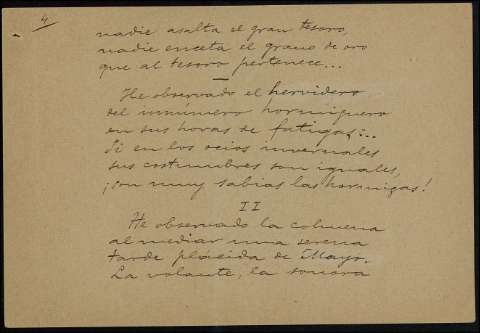 4
nadie asalta el gran tesoro,
nadie enceta el grano de oro
que al tesoro pertenece...
He observado el hervidero
del innúmero hormiguero
en sus horas de fatigas...
Si en los ocios invernales
sus costumbres son iguales,
¡son muy sabias las hormigas!
II
He observado la colmena
al mediar una serena
tarde plácida de Mayo.
La volante, la sonora